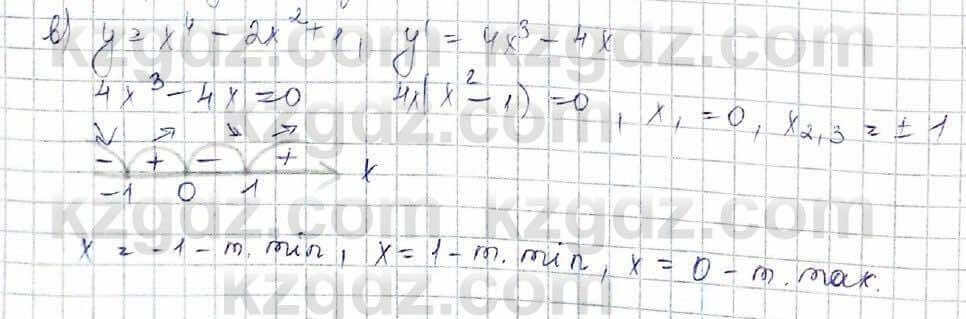 в) y = x⁴ - 2x² + 1, y' = 4x³ - 4x
4x³ - 4x = 0 4x(x² - 1) = 0, x₁ = 0, x₂,₃ = ± 1
↘ ↗ ↘ ↗
- + - + x
-1 0 1
x = -1 - т. min, x = 1 - т. min, x = 0 - т. max.
kzgdz.com
kzgdz.com
kzgdz.com
kzgdz.com
kzgdz.com